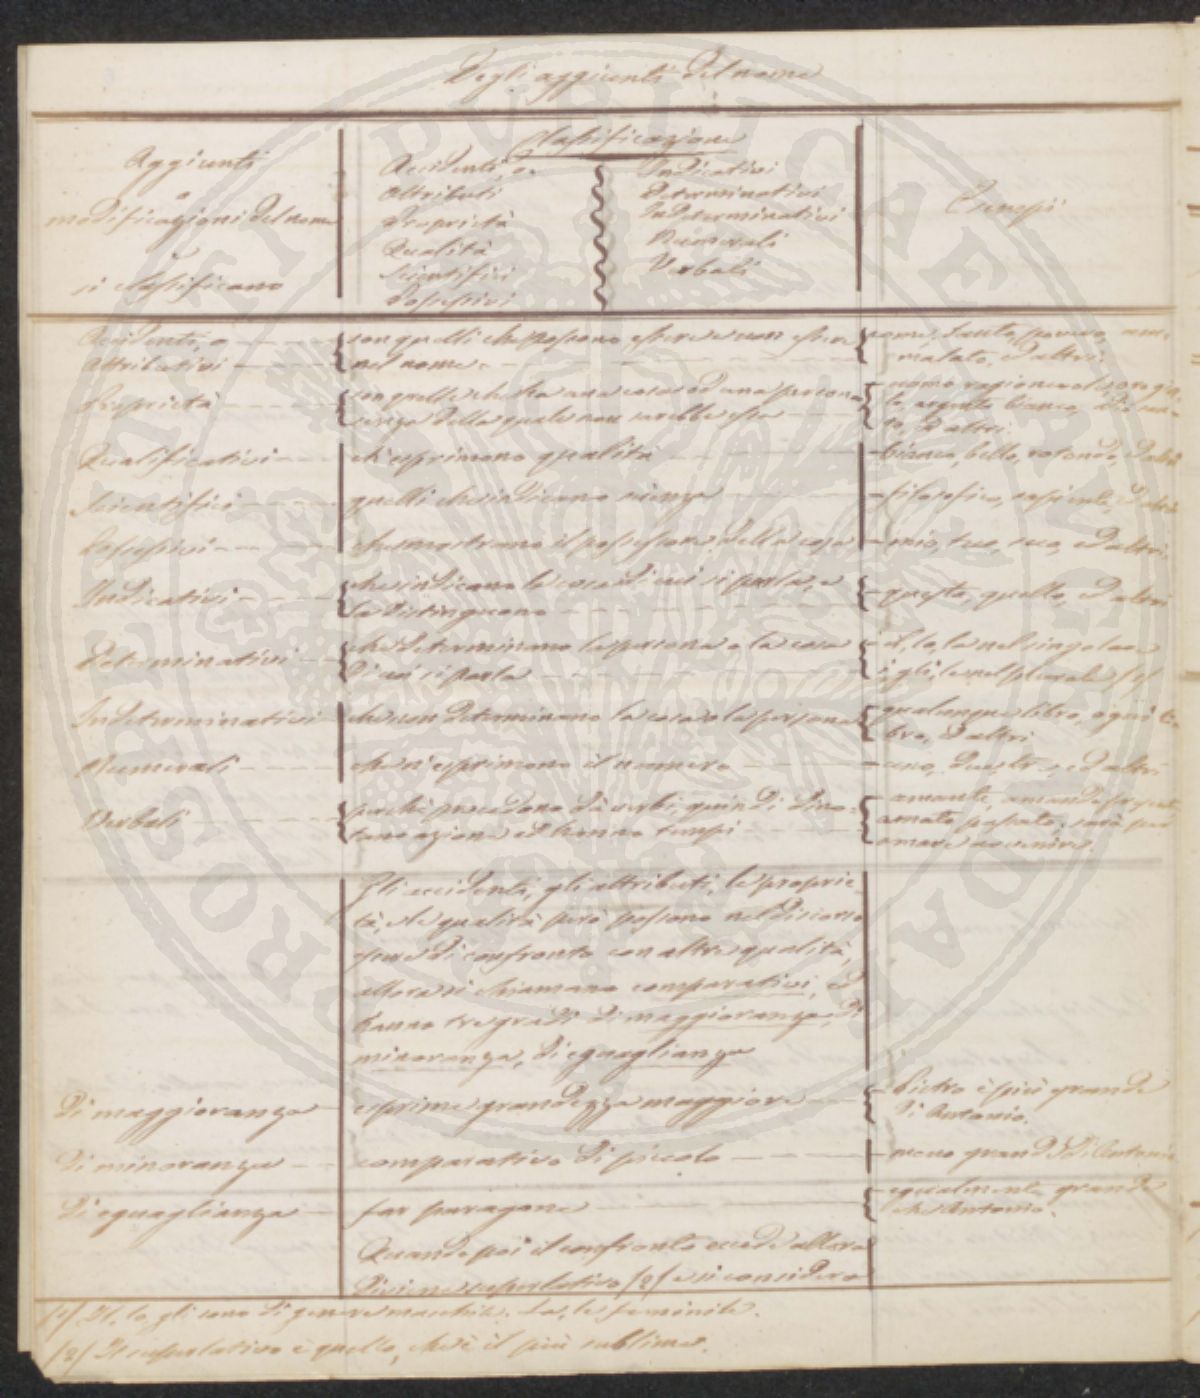 Degli aggiunti del nome
Aggiunti
o
modificazioni del nome
si classificano
Classificazione
Accidenti, o
Attributi
Proprietà
Qualità
Scientifici
Possessivi
Indicativi
Determinativi
Indeterminativi
Numerali
Verbali
Esempii
Accidenti, o
Attributivi
son quelli che possono essere e non essere
nel nome
uomo, santo, povero, am-
malato, ed altri.
Proprietà
son quelle che ha una cosa od una persona
senza della quale non sarebbe essa
uomo ragionevole, oro gial-
lo, argento bianco,
ed altri
Qualificativi
ch'esprimono qualità
bianco, bello, rotondo, ed altri
Scientifici
quelli che indicano scienza
filosofico, sapiente, ed altri
Possessivi
che mostrano il possessione della cosa
mio, tuo, suo, ed altri
Indicativi
che indicano la cosa di cui si parla, e
la distinguono
questo, quello, ed altri
Determinativi
che determinano la persona o la cosa
di cui si parla
il, lo, la nel singolare
i, gli, le nel plurale (1)
Indeterminativi
che non determinano la cosa o la persona
qualunque libro, ogni li-
bro, ed altri
Numerali
che n'esprimono il numero
uno, due, tre, ed altri
Verbali
perchè procedono da verbi, quindi dino-
tano azione ed hanno tempi
amante, amando present
amato passato, sarà per
amare avvenire.
Gli accidenti, gli attributi, le proprie-
tà, e le qualità però possono nel discorso
essere di confronto con altre qualità,
allora si chiamano comparativi, ed
hanno tre gradi di maggioranza, di
minoranza, di eguaglianza
Di maggioranza
esprime grandezza maggiore
Pietro è più grande
di Antonio.
Di minoranza
comparativo di piccolo
meno grande di Antonio
Di eguaglianza
far paragone
egualmente grande
che Antonio.
Quando poi il confronto eccede allora
diviene superlativo (2) e si considera
(1) Il, lo, gli sono di genere maschile. La, le feminile.
(2) Il superlativo è quello, che è il più sublime.